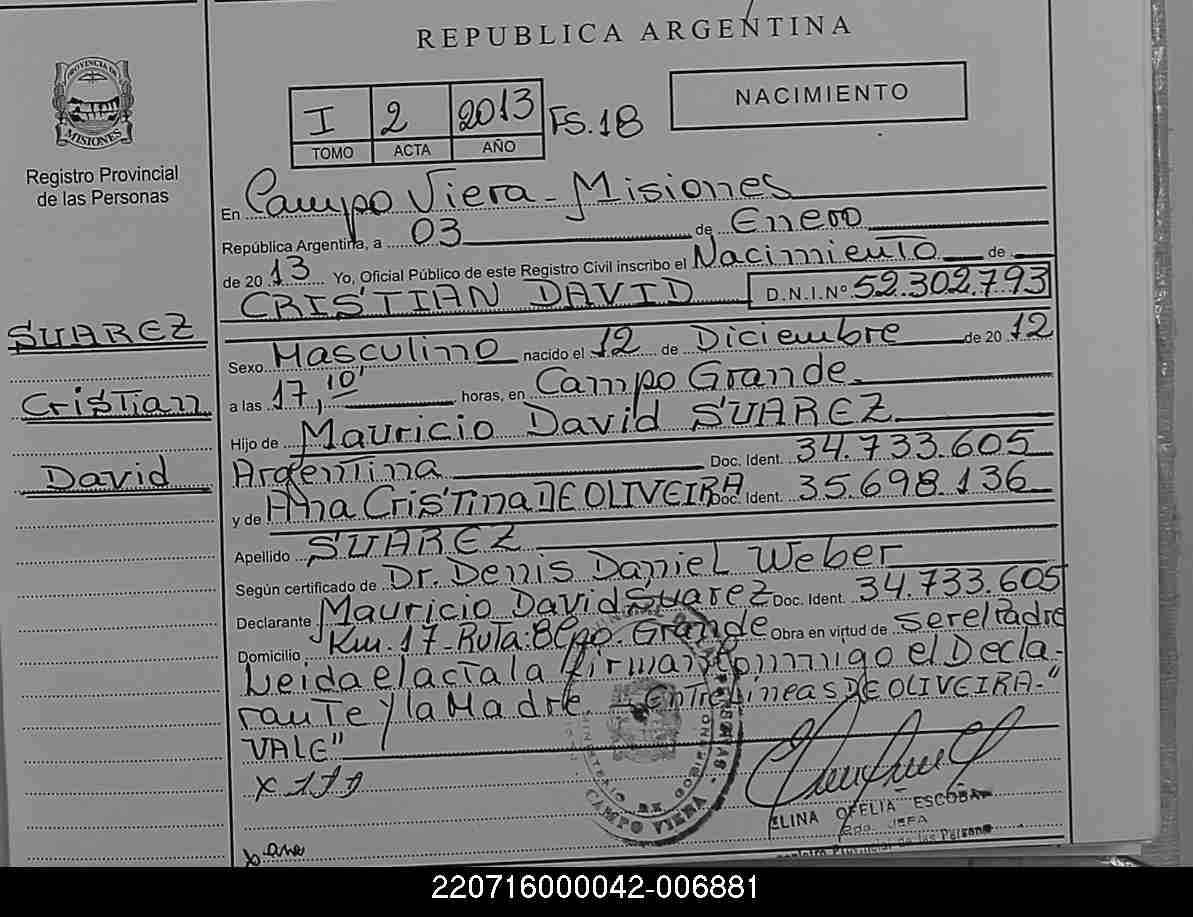 REPUBLICA ARGENTINA
PROVINCIA DE
MISIONES
Registro Provincial
de las Personas
I 2 2013 FS.18
TOMO ACTA AÑO
NACIMIENTO
En Campo Viera - Misiones
República Argentina, a 03 de Enero
de 2013 Yo, Oficial Público de este Registro Civil inscribo el Nacimiento de
CRISTIAN DAVID D.N.I.Nº 52.302.793
SUAREZ
Cristian
David
Sexo Masculino nacido el 12 de Diciembre de 2012
a las 17,10' horas, en Campo Grande.
Hijo de Mauricio David SUAREZ
Argentina Doc. Ident. 34.733.605
y de Ana Cristina DE OLIVEIRA Doc. Ident. 35.698.136
Apellido SUAREZ
Según certificado de Dr. Denis Daniel Weber
Declarante Mauricio David Suarez Doc. Ident. 34.733.605
Domicilio Km. 17 - Ruta: 8 Cpo. Grande Obra en virtud de ser el Padre
Leida el acta la firman conmigo el Decla-
rante y la Madre. - Entre Lineas DE OLIVEIRA-"
VALE"
CAMPO VIERA
ELINA OFELIA ESCOBAR
2da. JEFA
Registro Provincial de las Personas
220716000042-006881